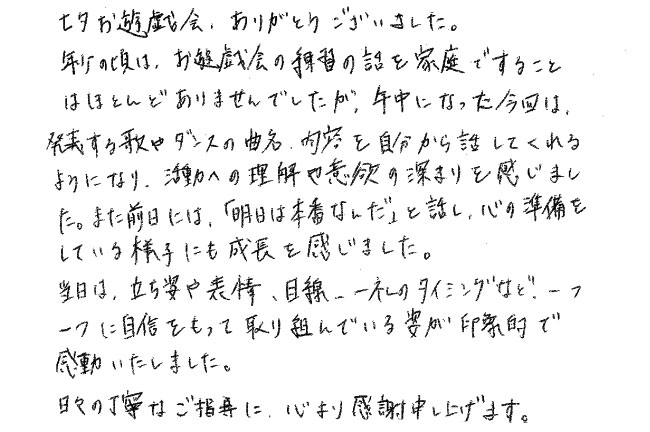 七夕お遊戯会、ありがとうございました。
年少の頃は、お遊戯会の練習の話を家庭ですること
はほとんどありませんでしたが、年中になった今回は、
発表する歌やダンスの曲名、内容を自分から話してくれる
ようになり、活動への理解や意欲の深まりを感じまし
た。また前日には、「明日は本番なんだ」と話し、心の準備を
している様子にも成長を感じました。
当日は、立ち姿や表情、目線、一礼のタイミングなど、一つ
一つに自信をもって取り組んでいる姿が印象的で
感動いたしました。
日々の丁寧なご指導に、心より感謝申し上げます。